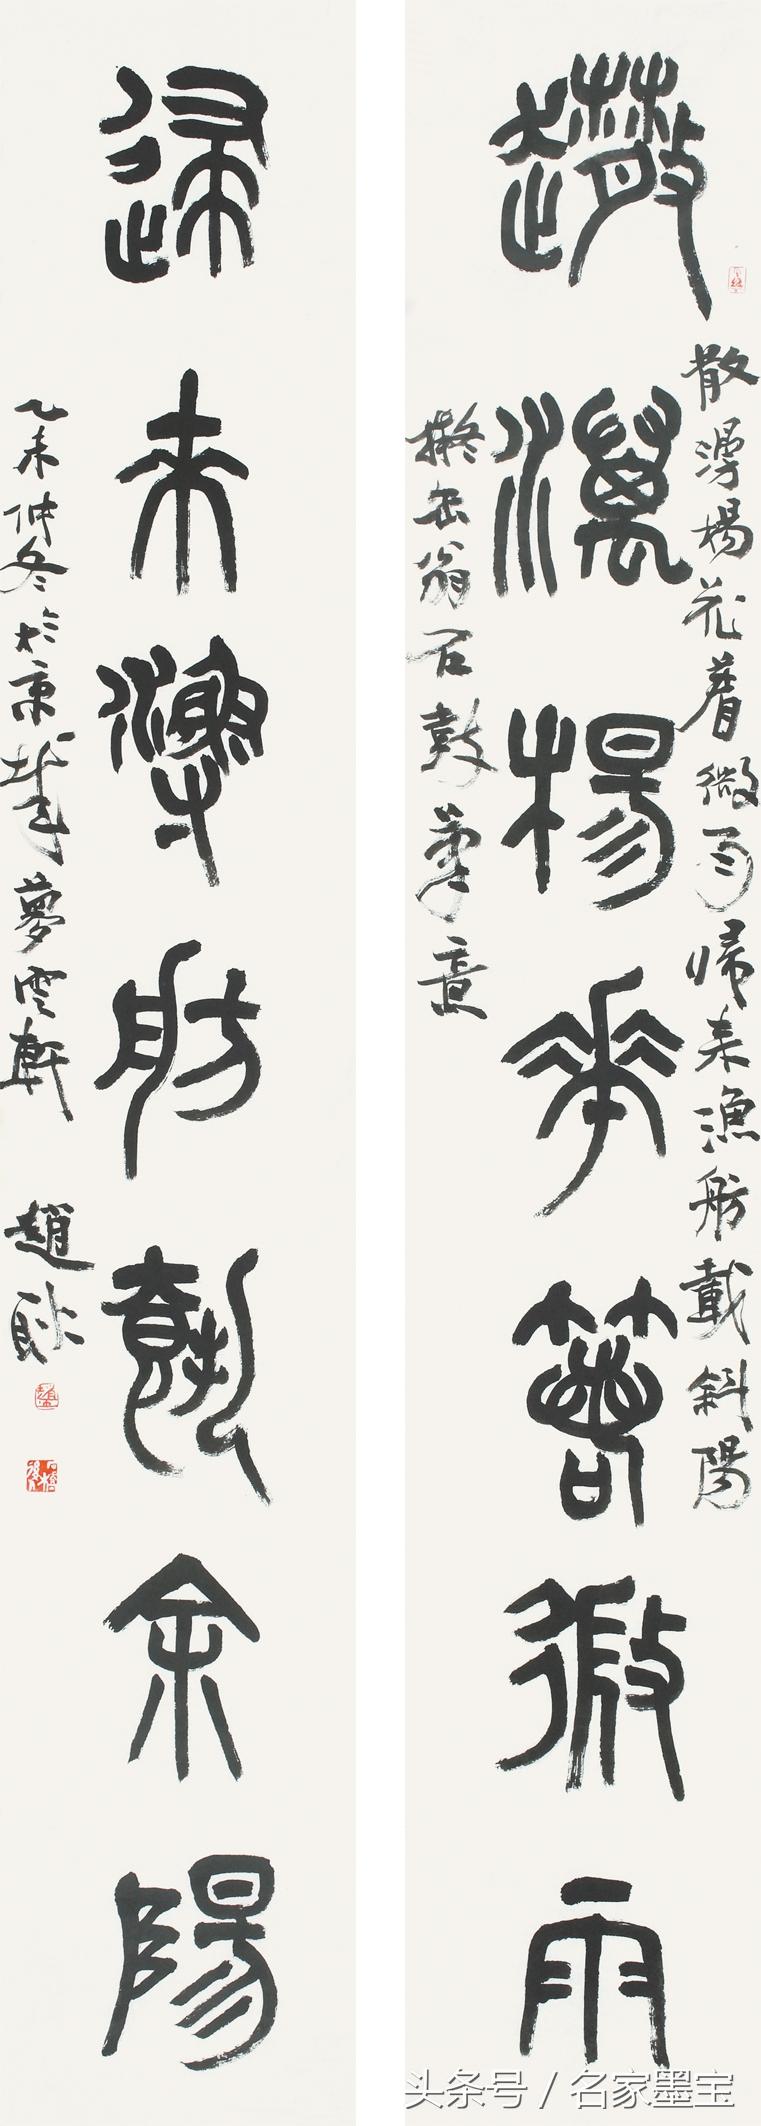 散漫楊花箸微雨
散漫楊花着微雨歸来漁舫載斜陽
擬缶翁石鼓筆意
歸来漁舫載余陽
乙未仲冬於京夢雲軒
趙
头条号 / 名家墨宝